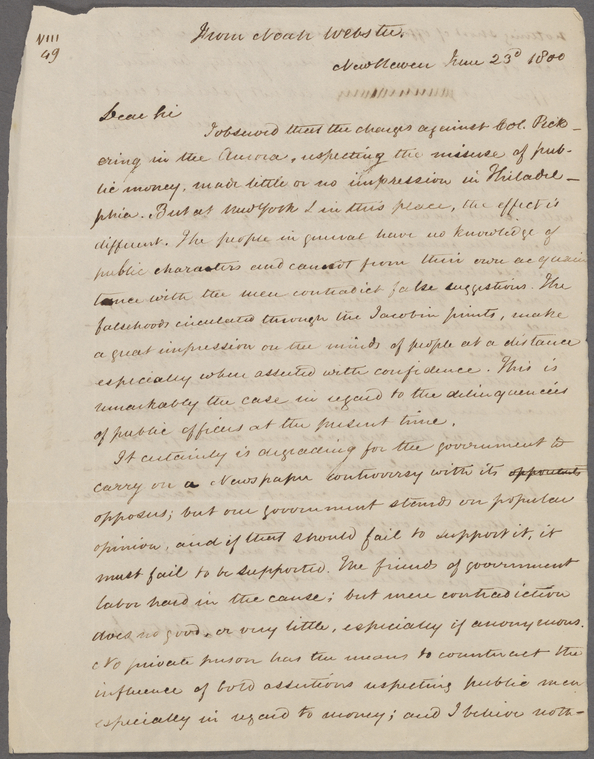 VIII
49
From Noah Webster.
New Haven June 23d 1800
Dear Sir
I observed that the charges against Col. Pick-
ering in the Aurora, respecting the misuse of pub-
lic money, made little or no impression in Philadel-
phia. But at New York & in this place, the effect is
different. The people in general have no knowledge of
public characters and cannot from their own acquain
tance with the men contradict false suggestions. The
falsehoods circulated through the Jacobin prints, make
a great impression on the minds of people at a distance
especially when asserted with confidence. This is
remarkably the case in regard to the delinquencies
of public officers at the present time.
It certainly is degrading for the government to
carry on a Newspaper controversy with its opponents
opposers; but our government stands on popular
opinion, and if that should fail to support it, it
must fail to be supported. The friends of government
labor hard in the cause; but mere contradiction
does no good, or very little, especially if anonymous.
No private person has the means to counteract the
influence of bold assertions respecting public men
especially in regard to money; and I believe noth-